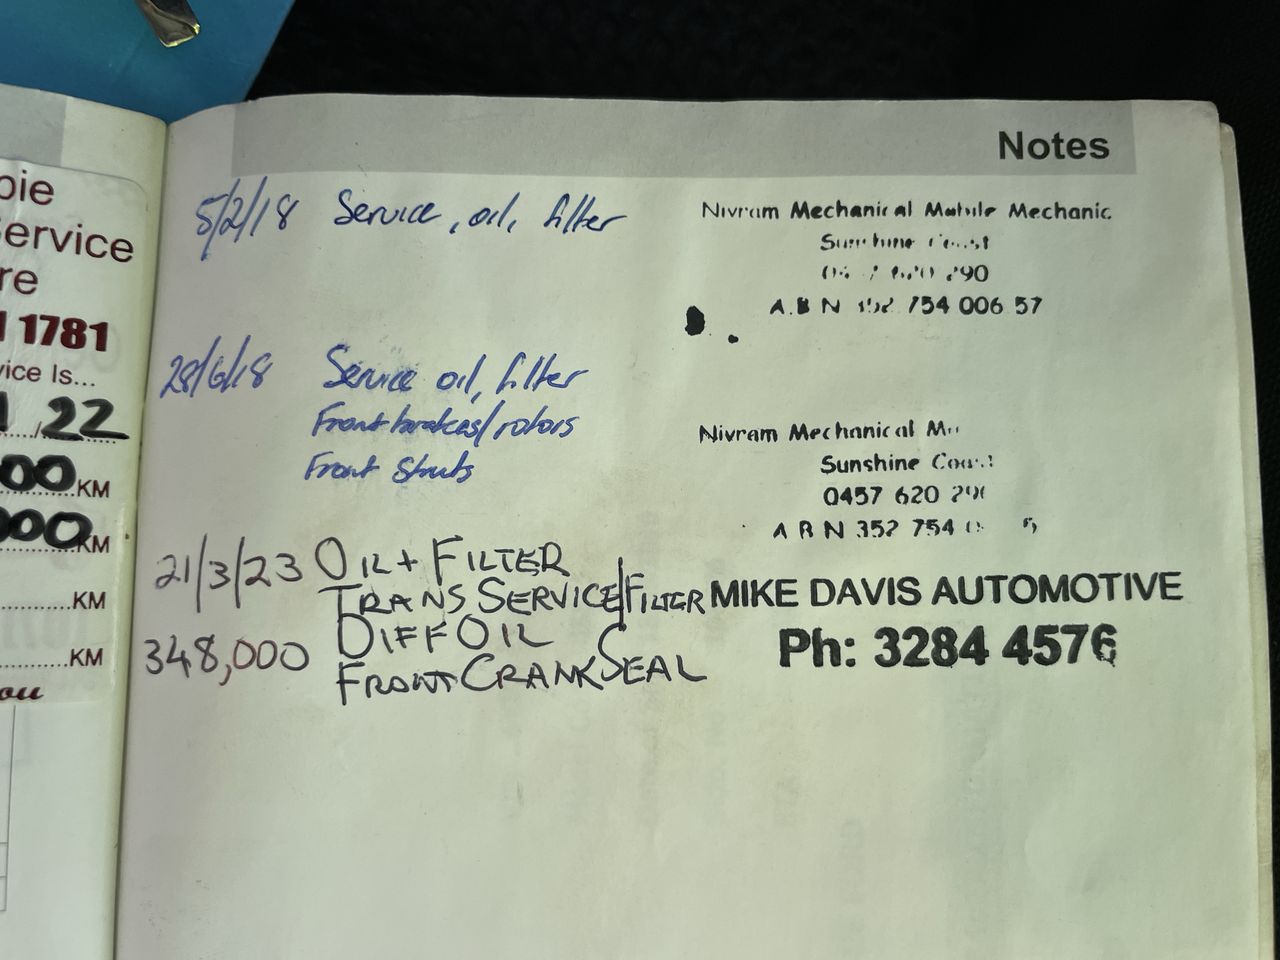 pie
Service
re
1781
vice Is...
/22
00 KM
000 KM
KM
KM
ou
Notes
5/2/18 Service, oil, filter
Nivram Mechanical Mobile Mechanic
Sunshine Coast
290
A.B N 352 754 006 57
28/6/18 Service oil, filter
Front brakes/rotors
Front Struts
Nivram Mechanical
Sunshine Coast
0457 620
A B N 352 754
21/3/23 OIL + FILTER
TRANS SERVICE/FILTER
348,000 DIFF OIL
FRONT CRANK SEAL
MIKE DAVIS AUTOMOTIVE
Ph: 3284 4576